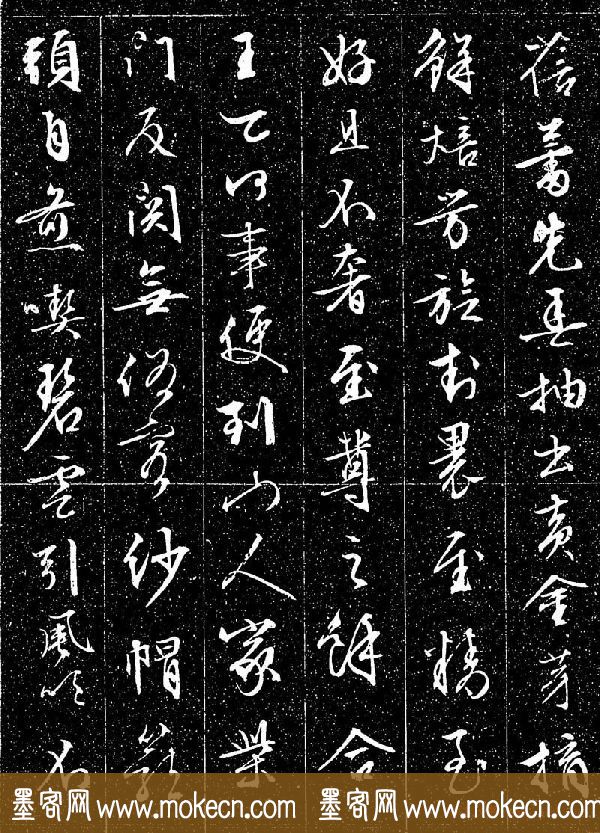 蓓蕾先春抽出黃金芽摘
鮮焙芳旋封裹至精至
好且不奢至尊之餘合
王公何事便到山人家柴
門反関無俗客紗帽籠
頭自煎喫碧雲引風吹不
墨客网 www.mokecn.com 墨客网 www.mokecn.com